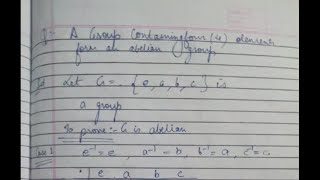 A Group Containing four (4) elements
form an abelian group.
Let G = { e, a, b, c } is
a group
To prove :- G is abelian
Case 1 e⁻¹ = e, a⁻¹ = b, b⁻¹ = a, c⁻¹ = c
· | e a b c